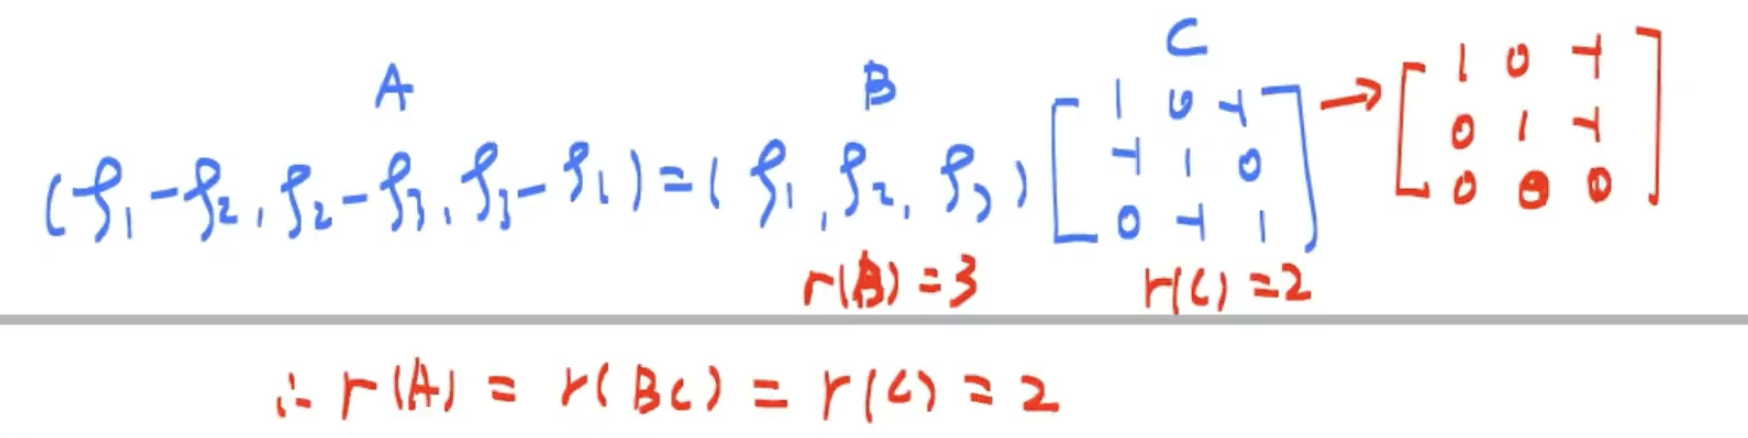 A B C
(ξ₁-ξ₂, ξ₂-ξ₃, ξ₃-ξ₁) = (ξ₁, ξ₂, ξ₃) [1 0 -1; -1 1 0; 0 -1 1] → [1 0 -1; 0 1 -1; 0 0 0]
r(B) = 3 r(C) = 2
∴ r(A) = r(BC) = r(C) = 2